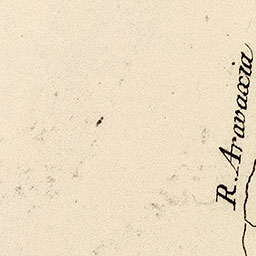 R. Aravaxia